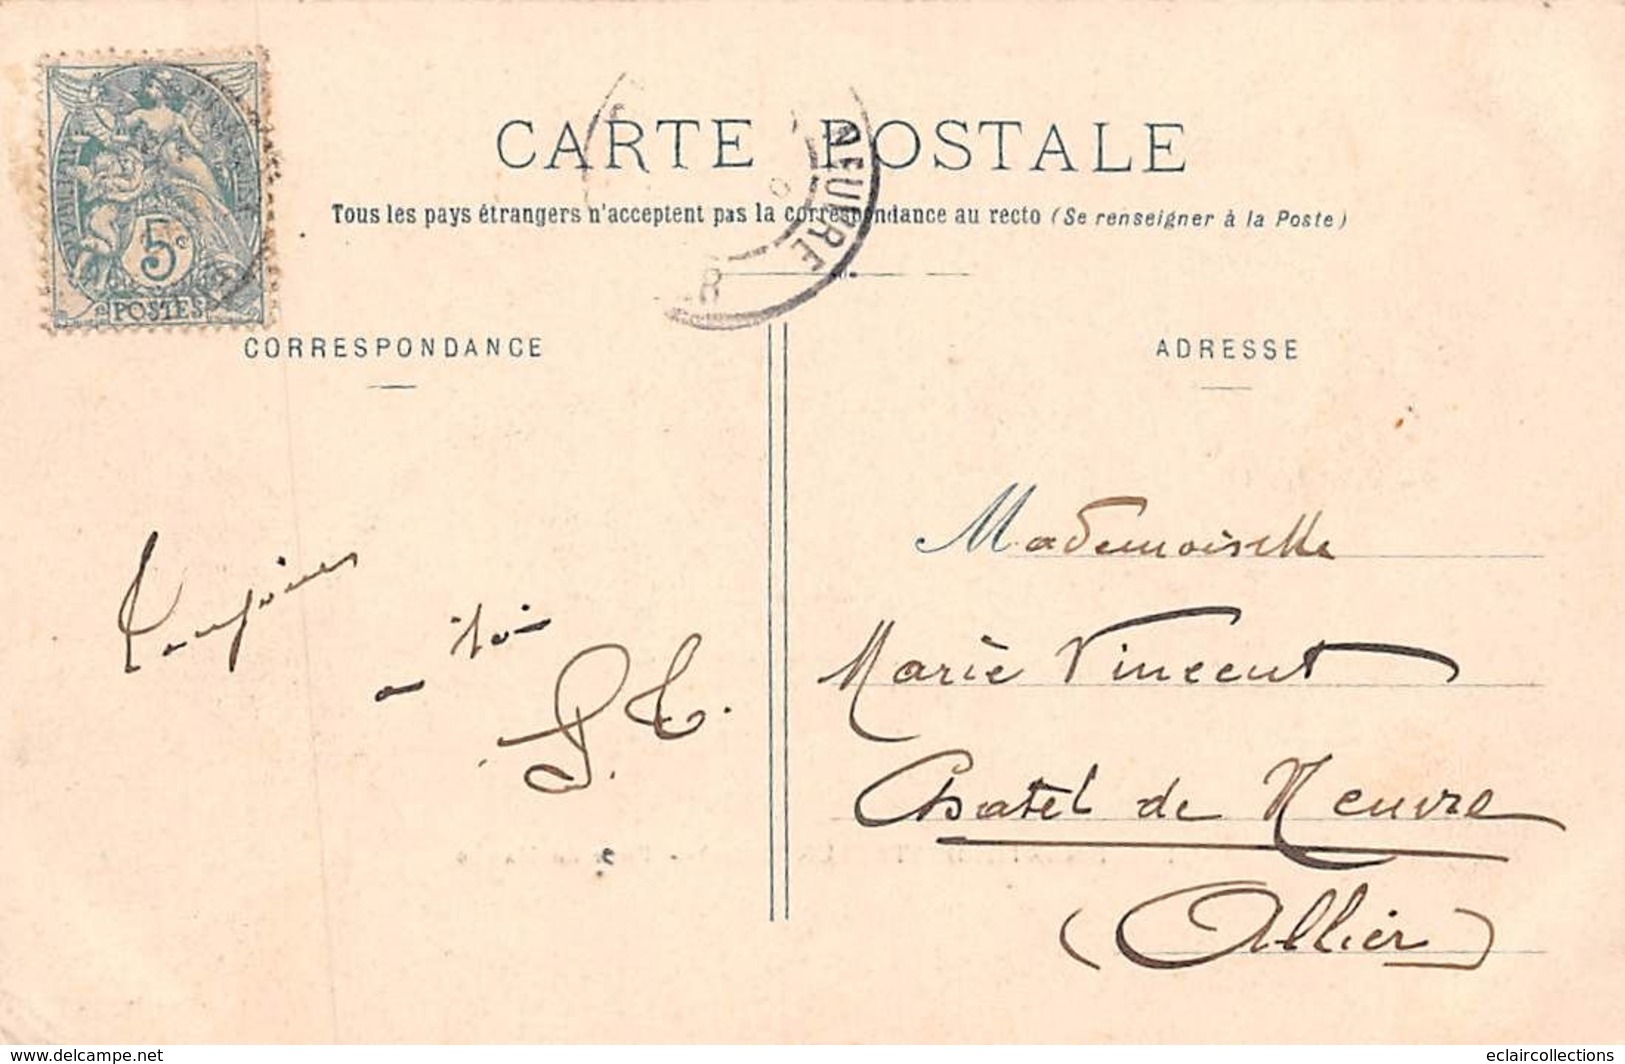 CARTE POSTALE
Tous les pays étrangers n'acceptent pas la correspondance au recto (Se renseigner à la Poste)
POSTES
5c
NEUVRE
CORRESPONDANCE
ADRESSE
Toujours
a toi
P. T.
Mademoiselle
Marie Vincent
Chatel de Neuvre
(Allier)
www.delcampe.net
eclaircollections